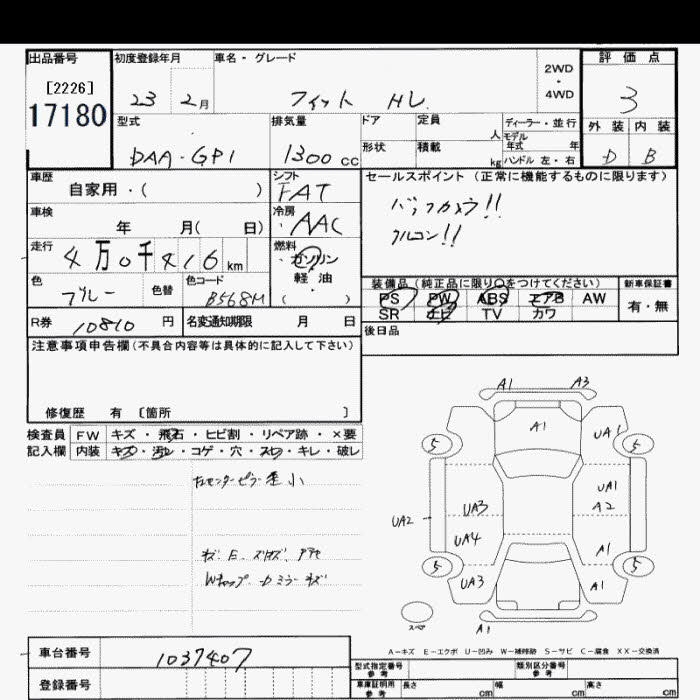 出品番号 初度登録年月 車名・グレード 2WD・4WD 評価点
[2226] 17180 23 2月 フィット HL 3
型式 排気量 ドア 定員 人 ディーラー・並行 外装 内装
モデル年式 年
DAA-GP1 1300cc 形状 積載 kg ハンドル 左・右 D B
車歴 シフト セールスポイント(正常に機能するものに限ります)
自家用・( ) FAT
車検 冷房 バックカメラ!!
年 月( 日) AAC クルコン!!
走行 燃料
4万0千416km ガソリン・軽油
色 色替 色コード 装備品(純正品に限り○をつけてください) 新車保証書
ブルー B568M ( ) PS PW ABS エアB AW 有・無
R券 10810円 名変通知期限 月 日 SR ナビ TV カワ
後日品
注意事項申告欄(不具合内容等は具体的に記入して下さい)
修復歴 有 〔箇所 〕
検査員 FW キズ・飛石・ヒビ割・リペア跡・×要
記入欄 内装 キズ・汚レ・コゲ・穴・スレ・キレ・破レ
センターピラー 歪 小
キズ
Wキャップ Dミラー キズ
A1 A3
A1 UA1
5 5
UA1
UA3 A2
UA2
UA4 A1
5 5
UA3 A1
スペア A1
A-キズ E-エクボ U-凹み W-補修跡 S-サビ C-腐食 XX-交換済
車台番号 1037407
型式指定番号 参考 類別区分番号 参考
登録番号 車庫証明用 参考 長さ cm 幅 cm 高さ cm